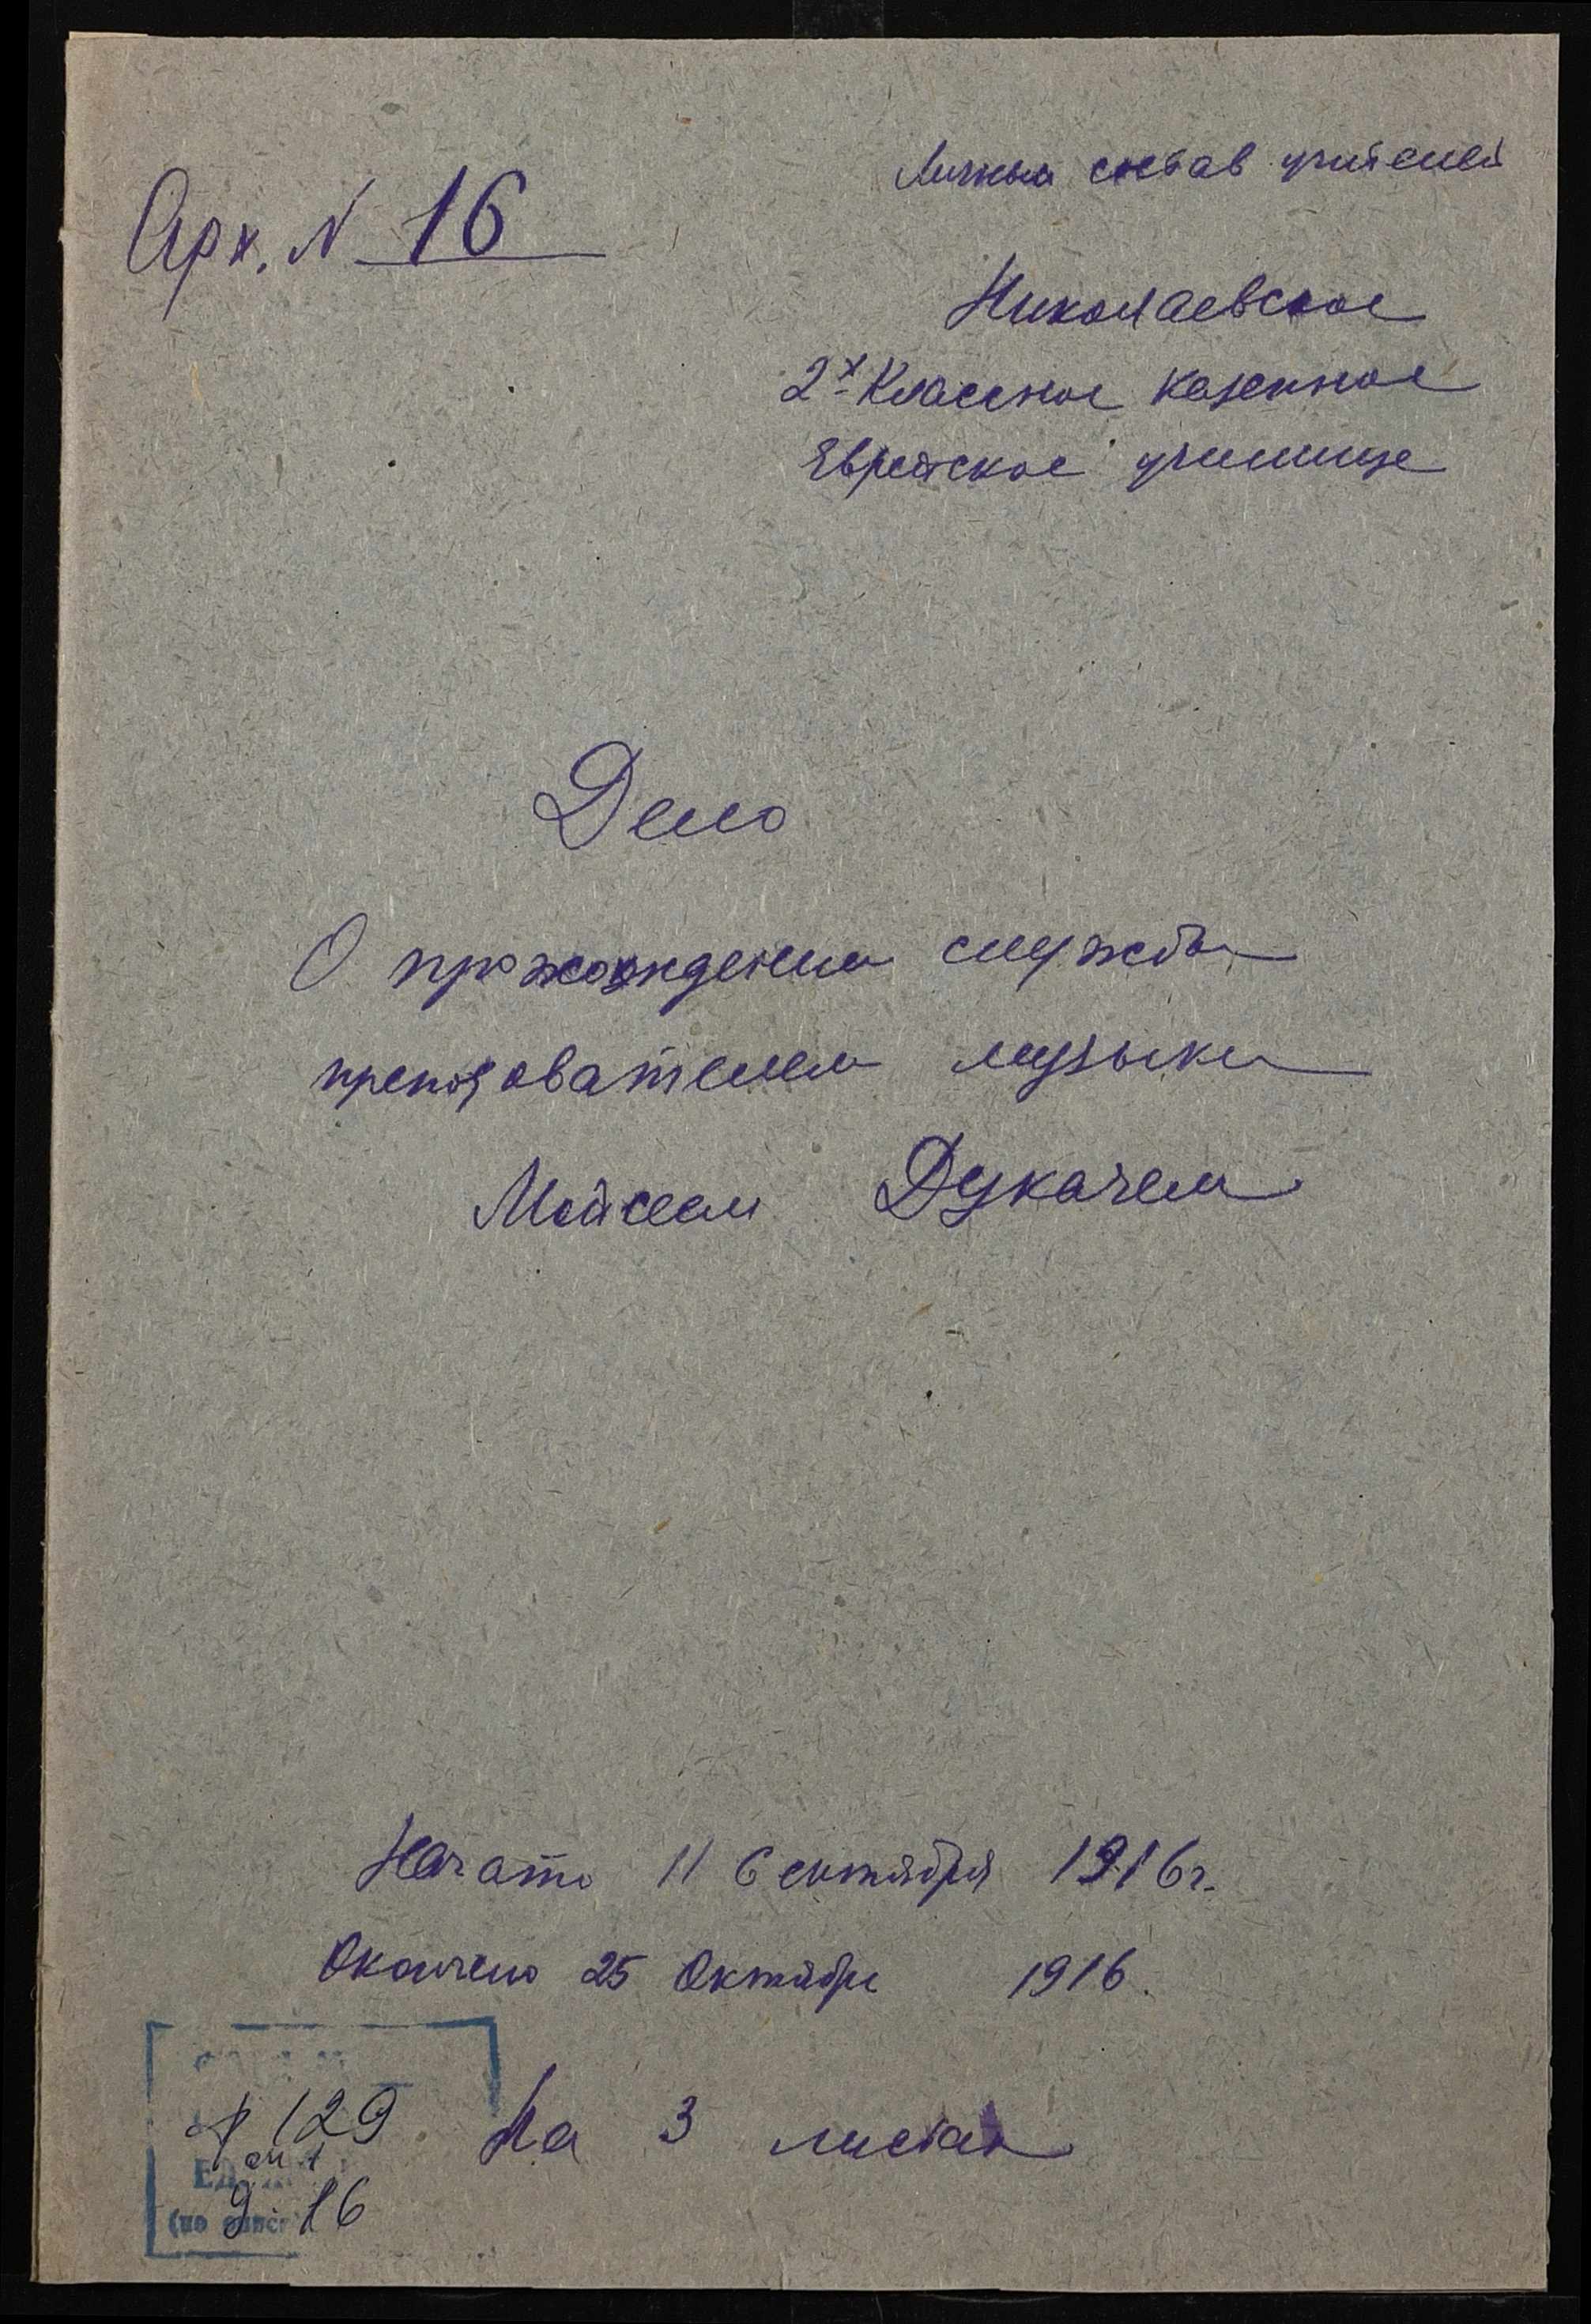 Арх. N 16
Личный состав учителей
Николаевское
2х Классное казенное
Еврейское училище
Дело
О прохождении службы
преподователем музыки
Мойсеем Дукачем
Начато 11 Сентября 1916 г.
Окончено 25 Октября 1916.
На 3 листах
ф 129
оп 1
д 16
(по описи